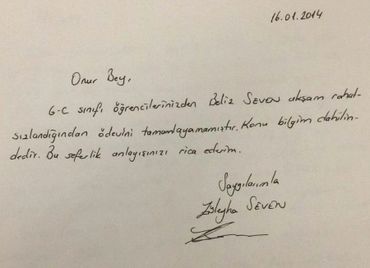 16.01.2014
Onur Bey,
6-C sınıfı öğrencilerinizden Beliz SEVEN akşam rahat-
sızlandığından ödevini tamamlayamamıştır. Konu bilgim dahilin-
dedir. Bu seferlik anlayışınızı rica ederim.
Saygılarımla
Züleyha SEVEN